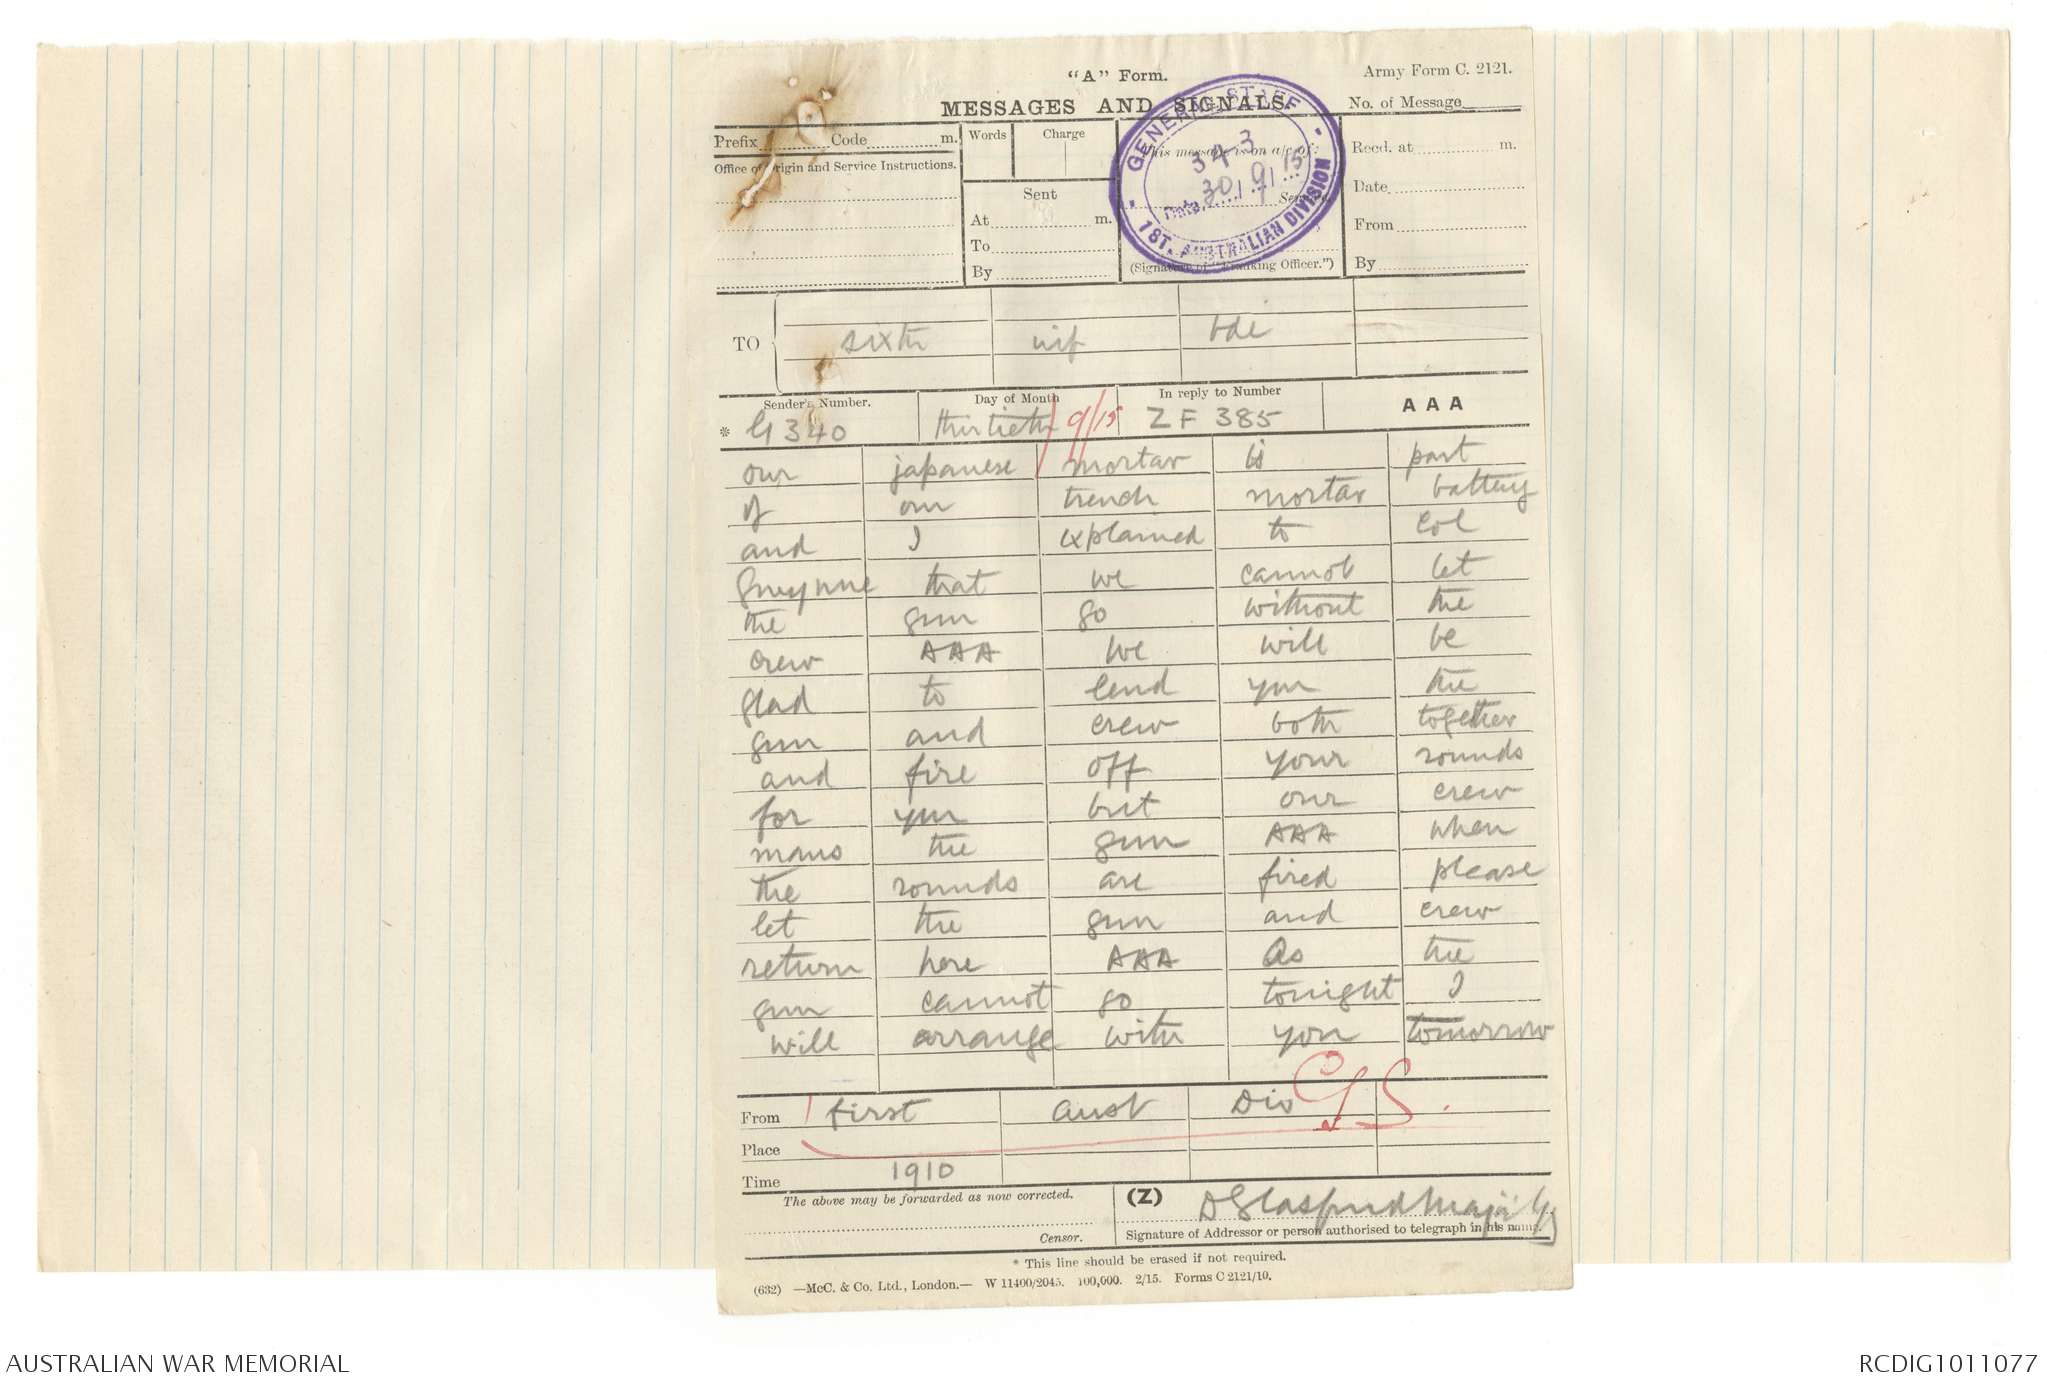 "A" Form.
Army Form C. 2121.
MESSAGES AND SIGNALS.
No. of Message
Prefix Code m.
Words Charge
This message is on a/c of:
Recd. at m.
Office of Origin and Service Instructions.
Sent
Date
At m.
Service.
From
To
By
(Signature of "Franking Officer.")
By
GENERAL STAFF
343
Date 30/9/15
1ST. AUSTRALIAN DIVISION
TO sixth inf bde
Sender's Number. Day of Month In reply to Number AAA
* G 340 thirtieth /9/15 ZF 385
our japanese mortar is part
of our trench mortar battery
and I explained to Col
Gwynne that we cannot let
the gun go without the
crew AAA We will be
glad to lend you the
gun and crew both together
and fire off your rounds
for you but our crew
mans the gun AAA when
the rounds are fired please
let the gun and crew
return here AAA As the
gun cannot go tonight I
will arrange with you tomorrow
From first aust Div GS.
Place
Time 1910
The above may be forwarded as now corrected.
(Z) DGlasfurd Major GS
Censor.
Signature of Addressor or person authorised to telegraph in his name.
* This line should be erased if not required.
(632) —McC. & Co. Ltd., London.— W 11400/2045. 100,000. 2/15. Forms C 2121/10.
AUSTRALIAN WAR MEMORIAL
RCDIG1011077